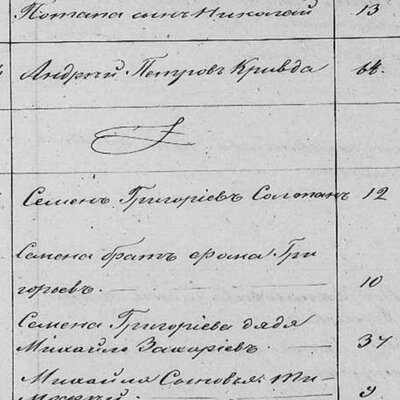 Потапа сынъ Николай 13
Андрей Петровъ Кривда 64.
Семенъ Григоріевъ Солопанъ 12
Семена братъ Фрома Гри
горьевъ. 10
Семена Григоріева дядя
Михайло Захаріевъ. 37
Михайла Сыновья: Ти-
9